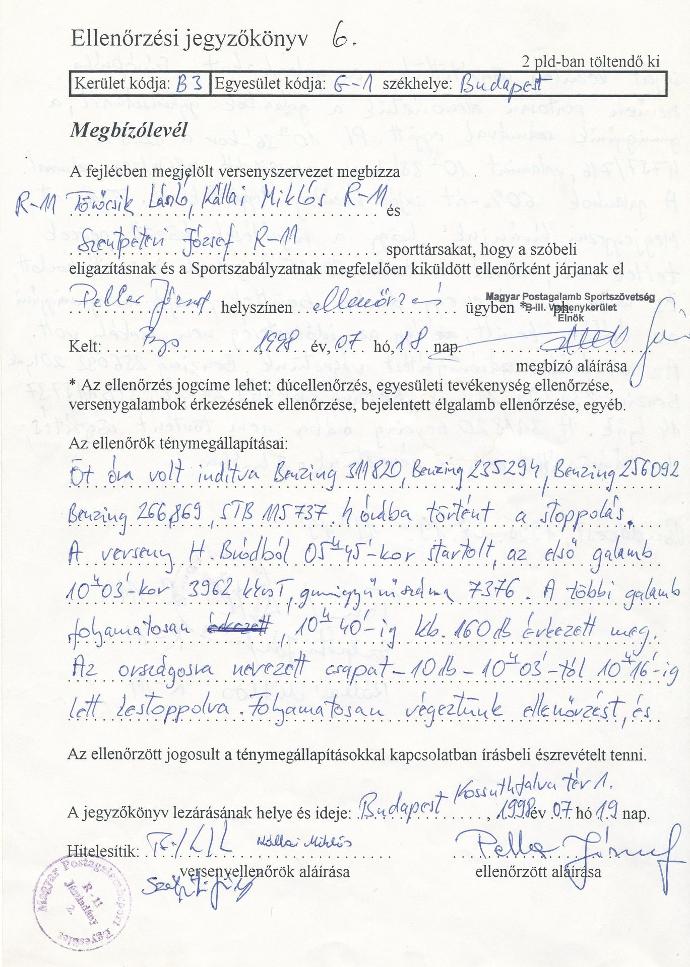 Ellenőrzési jegyzőkönyv 6.
2 pld-ban töltendő ki
Kerület kódja: B3 Egyesület kódja: G-1 székhelye: Budapest
Megbízólevél
A fejlécben megjelölt versenyszervezet megbízza
R-11 Törőcsik László, Kállai Miklós R-11 és
Szentpéteri József R-11 sporttársakat, hogy a szóbeli
eligazításnak és a Sportszabályzatnak megfelelően kiküldött ellenőrként járjanak el
Peller József helyszínen ellenőrzés ügyben *
Magyar Postagalamb Sportszövetség
B-III. Versenykerület
Elnök
Kelt: Bp 1998 év, 07 hó, 18 nap.
megbízó aláírása
* Az ellenőrzés jogcíme lehet: dúcellenőrzés, egyesületi tevékenység ellenőrzése,
versenygalambok érkezésének ellenőrzése, bejelentett élgalamb ellenőrzése, egyéb.
Az ellenőrök ténymegállapításai:
Öt óra volt indítva Benzing 311820, Benzing 235294, Benzing 256092
Benzing 266,869, STB 115737. órába történt a stoppolás.
A verseny H. Bródból 05ʰ45'-kor startolt, az első galamb
10ʰ03'-kor 3962, gumigyűrűszáma 7376. A többi galamb
folyamatosan érkezett, 10ʰ40'-ig kb. 160 db érkezett meg.
Az országosra nevezett csapat – 10 db – 10ʰ03'-tól 10ʰ16'-ig
lett lestoppolva. Folyamatosan végeztünk ellenőrzést, és
Az ellenőrzött jogosult a ténymegállapításokkal kapcsolatban írásbeli észrevételt tenni.
A jegyzőkönyv lezárásának helye és ideje: Budapest Kossuthfalva tér 1., 1998 év 07 hó 19 nap.
Hitelesítik: Kállai Miklós Peller József
versenyellenőrök aláírása ellenőrzött aláírása
Magyar Postagalambsport Egyesület
R-11
2.